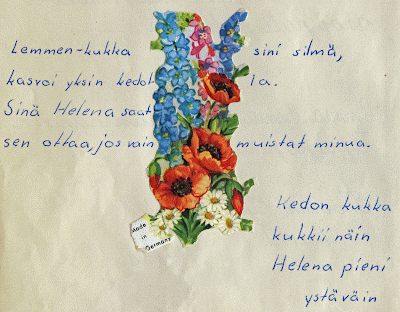 Lemmen-kukka sini silmä,
kasvoi yksin kedolla.
Sinä Helena saat
sen ottaa, jos vain muistat minua.
Made
in
Germany
Kedon kukka
kukkii näin
Helena pieni
ystäväin